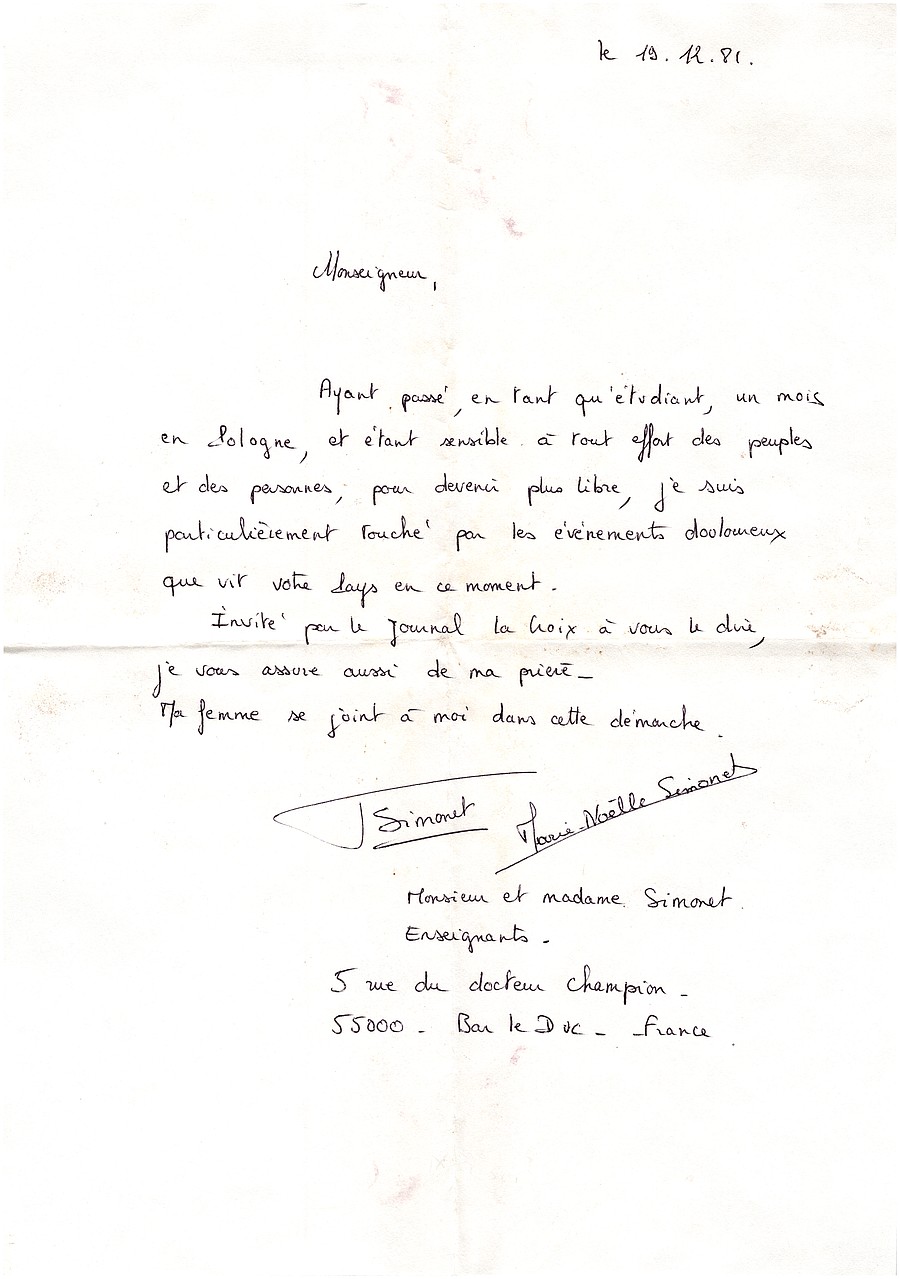 le 19.12.81.
Monseigneur,
Ayant passé, en tant qu'étudiant, un mois
en Pologne, et étant sensible à tout effort des peuples
et des personnes, pour devenir plus libre, je suis
particulièrement touché par les événements douloureux
que vit votre Pays en ce moment.
Invité par le Journal La Croix à vous le dire,
je vous assure aussi de ma prière -
Ma femme se joint à moi dans cette démarche.
J Simonet Marie-Noëlle Simonet
Monsieur et madame Simonet.
Enseignants -
5 rue du docteur Champion -
55000 - Bar le Duc - France.